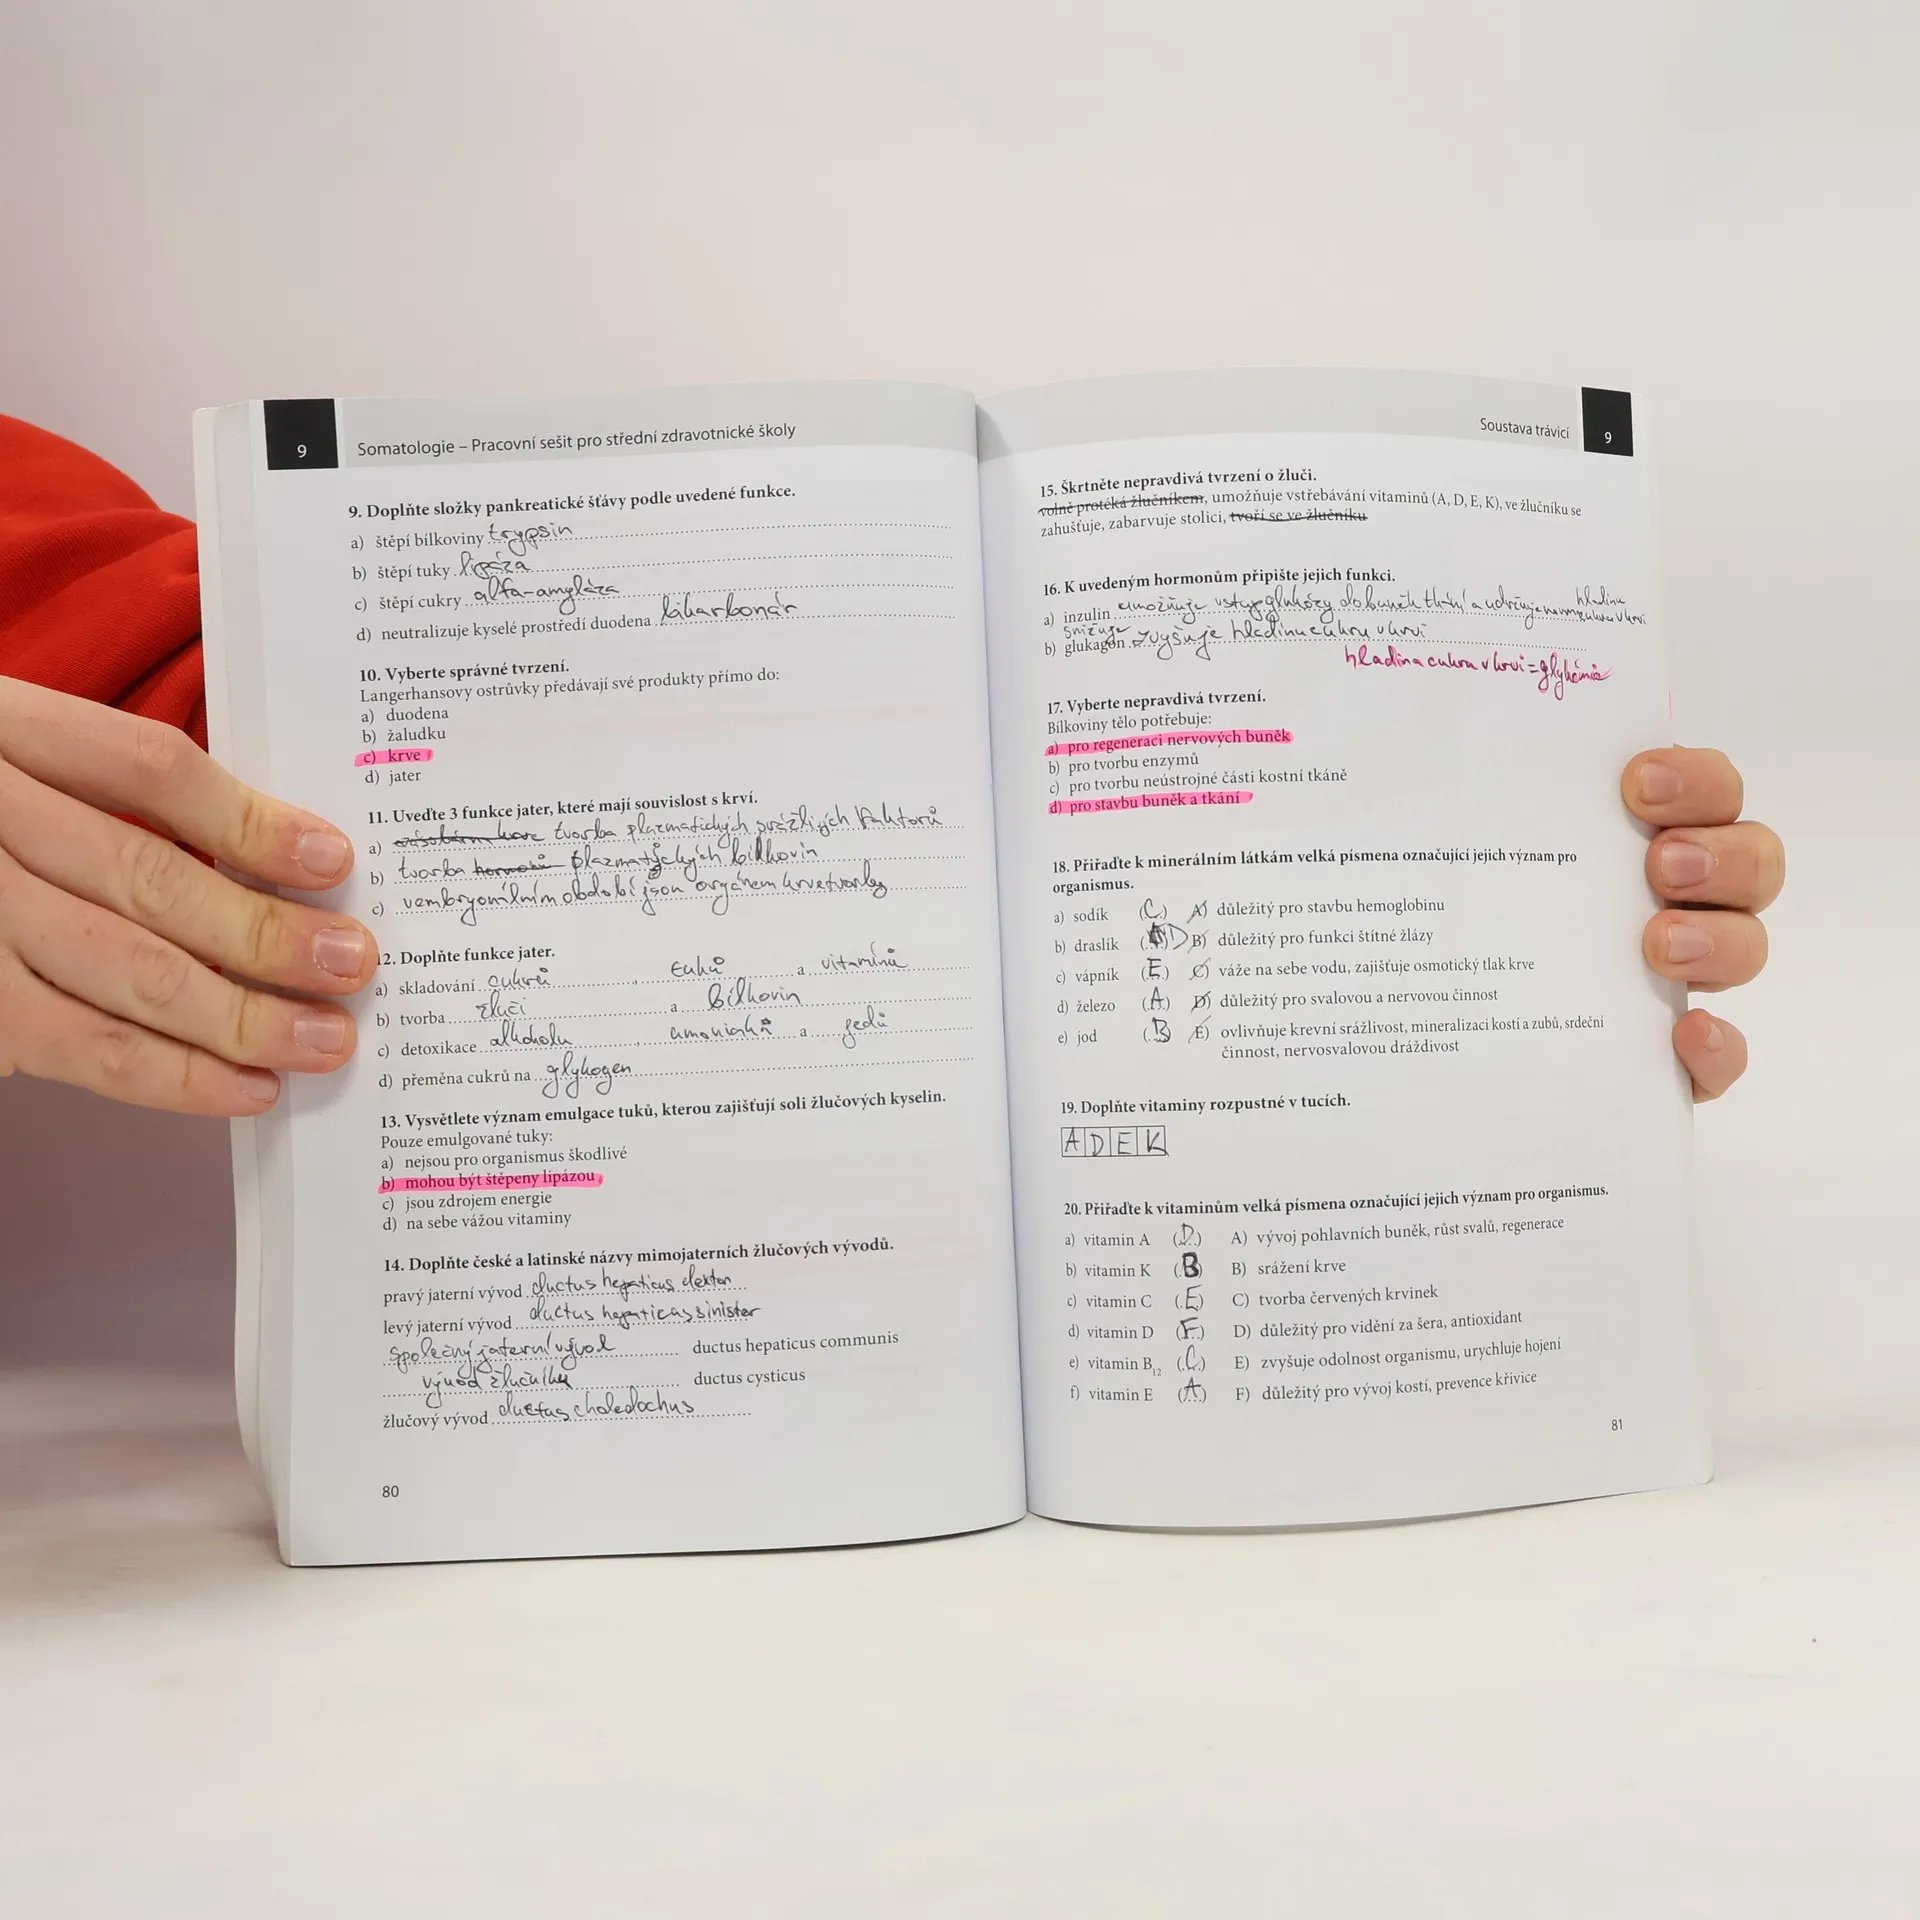 9
Somatologie – Pracovní sešit pro střední zdravotnické školy
9. Doplňte složky pankreatické šťávy podle uvedené funkce.
a) štěpí bílkoviny trypsin
b) štěpí tuky lipáza
c) štěpí cukry alfa-amyláza
d) neutralizuje kyselé prostředí duodena bikarbonár
10. Vyberte správné tvrzení.
Langerhansovy ostrůvky předávají své produkty přímo do:
a) duodena
b) žaludku
c) krve
d) jater
11. Uveďte 3 funkce jater, které mají souvislost s krví.
a) zásobárn krve tvorba plazmatických srážlivých faktorů
b) tvorba hormonů plazmatyckých bílkovin
c) v embryonílním období jsou orgánem krvetvorby
12. Doplňte funkce jater.
a) skladování cukrů, tuků a vitamínů
b) tvorba žluči a bílkovin
c) detoxikace alkoholu, amoniaků a jedů
d) přeměna cukrů na glykogen
13. Vysvětlete význam emulgace tuků, kterou zajišťují soli žlučových kyselin.
Pouze emulgované tuky:
a) nejsou pro organismus škodlivé
b) mohou být štěpeny lipázou
c) jsou zdrojem energie
d) na sebe vážou vitaminy
14. Doplňte české a latinské názvy mimojaterních žlučových vývodů.
pravý jaterní vývod ductus hepaticus dexter
levý jaterní vývod ductus hepaticus sinister
společný jaterní vývod ductus hepaticus communis
vývod žlučníku ductus cysticus
žlučový vývod ductus choledochus
80
Soustava trávicí
9
15. Škrtněte nepravdivá tvrzení o žluči.
volně protéká žlučníkem, umožňuje vstřebávání vitaminů (A, D, E, K), ve žlučníku se
zahušťuje, zabarvuje stolici, tvoří se ve žlučníku
16. K uvedeným hormonům připište jejich funkci.
hladinu
a) inzulin umožňuje vstup glukózy do buněk tkání a udržuje cukru v krvi
snižuje
b) glukagon zvyšuje hladinu cukru v krvi
hladina cukru v krvi = glykémie
17. Vyberte nepravdivá tvrzení.
Bílkoviny tělo potřebuje:
a) pro regeneraci nervových buněk
b) pro tvorbu enzymů
c) pro tvorbu neústrojné části kostní tkáně
d) pro stavbu buněk a tkání
18. Přiřaďte k minerálním látkám velká písmena označující jejich význam pro
organismus.
a) sodík (C) A) důležitý pro stavbu hemoglobinu
b) draslík (D) B) důležitý pro funkci štítné žlázy
c) vápník (E) C) váže na sebe vodu, zajišťuje osmotický tlak krve
d) železo (A) D) důležitý pro svalovou a nervovou činnost
e) jod (B) E) ovlivňuje krevní srážlivost, mineralizaci kostí a zubů, srdeční
činnost, nervosvalovou dráždivost
19. Doplňte vitaminy rozpustné v tucích.
A D E K
20. Přiřaďte k vitaminům velká písmena označující jejich význam pro organismus.
a) vitamin A (D) A) vývoj pohlavních buněk, růst svalů, regenerace
b) vitamin K (B) B) srážení krve
c) vitamin C (E) C) tvorba červených krvinek
d) vitamin D (F) D) důležitý pro vidění za šera, antioxidant
e) vitamin B12 (C) E) zvyšuje odolnost organismu, urychluje hojení
f) vitamin E (A) F) důležitý pro vývoj kostí, prevence křivice
81